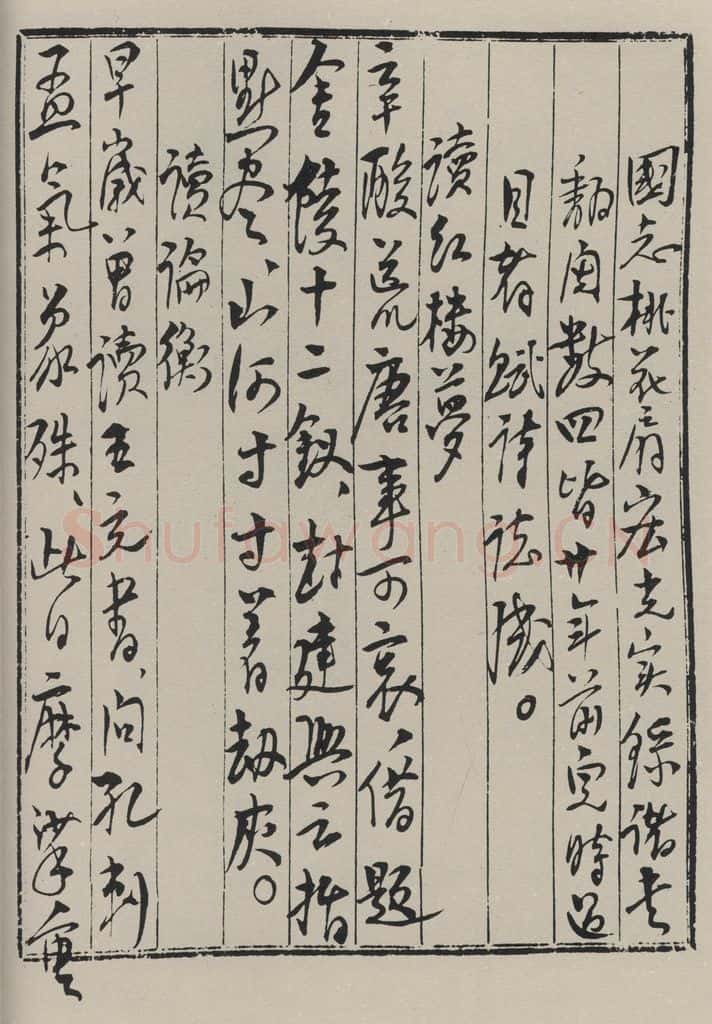 國志桃花扇宏光实錄諸书
翻閱數四皆廿年前兒時過
目者賦詩誌感。
讀紅樓夢
辛酸荒唐事可哀、借題
金陵十二釵、封建興亡指
點、山河寸寸着劫灰。
讀論衡
早歲曾讀王充書、问孔刺
孟氣象殊、此日摩挲
Shufawang.CN